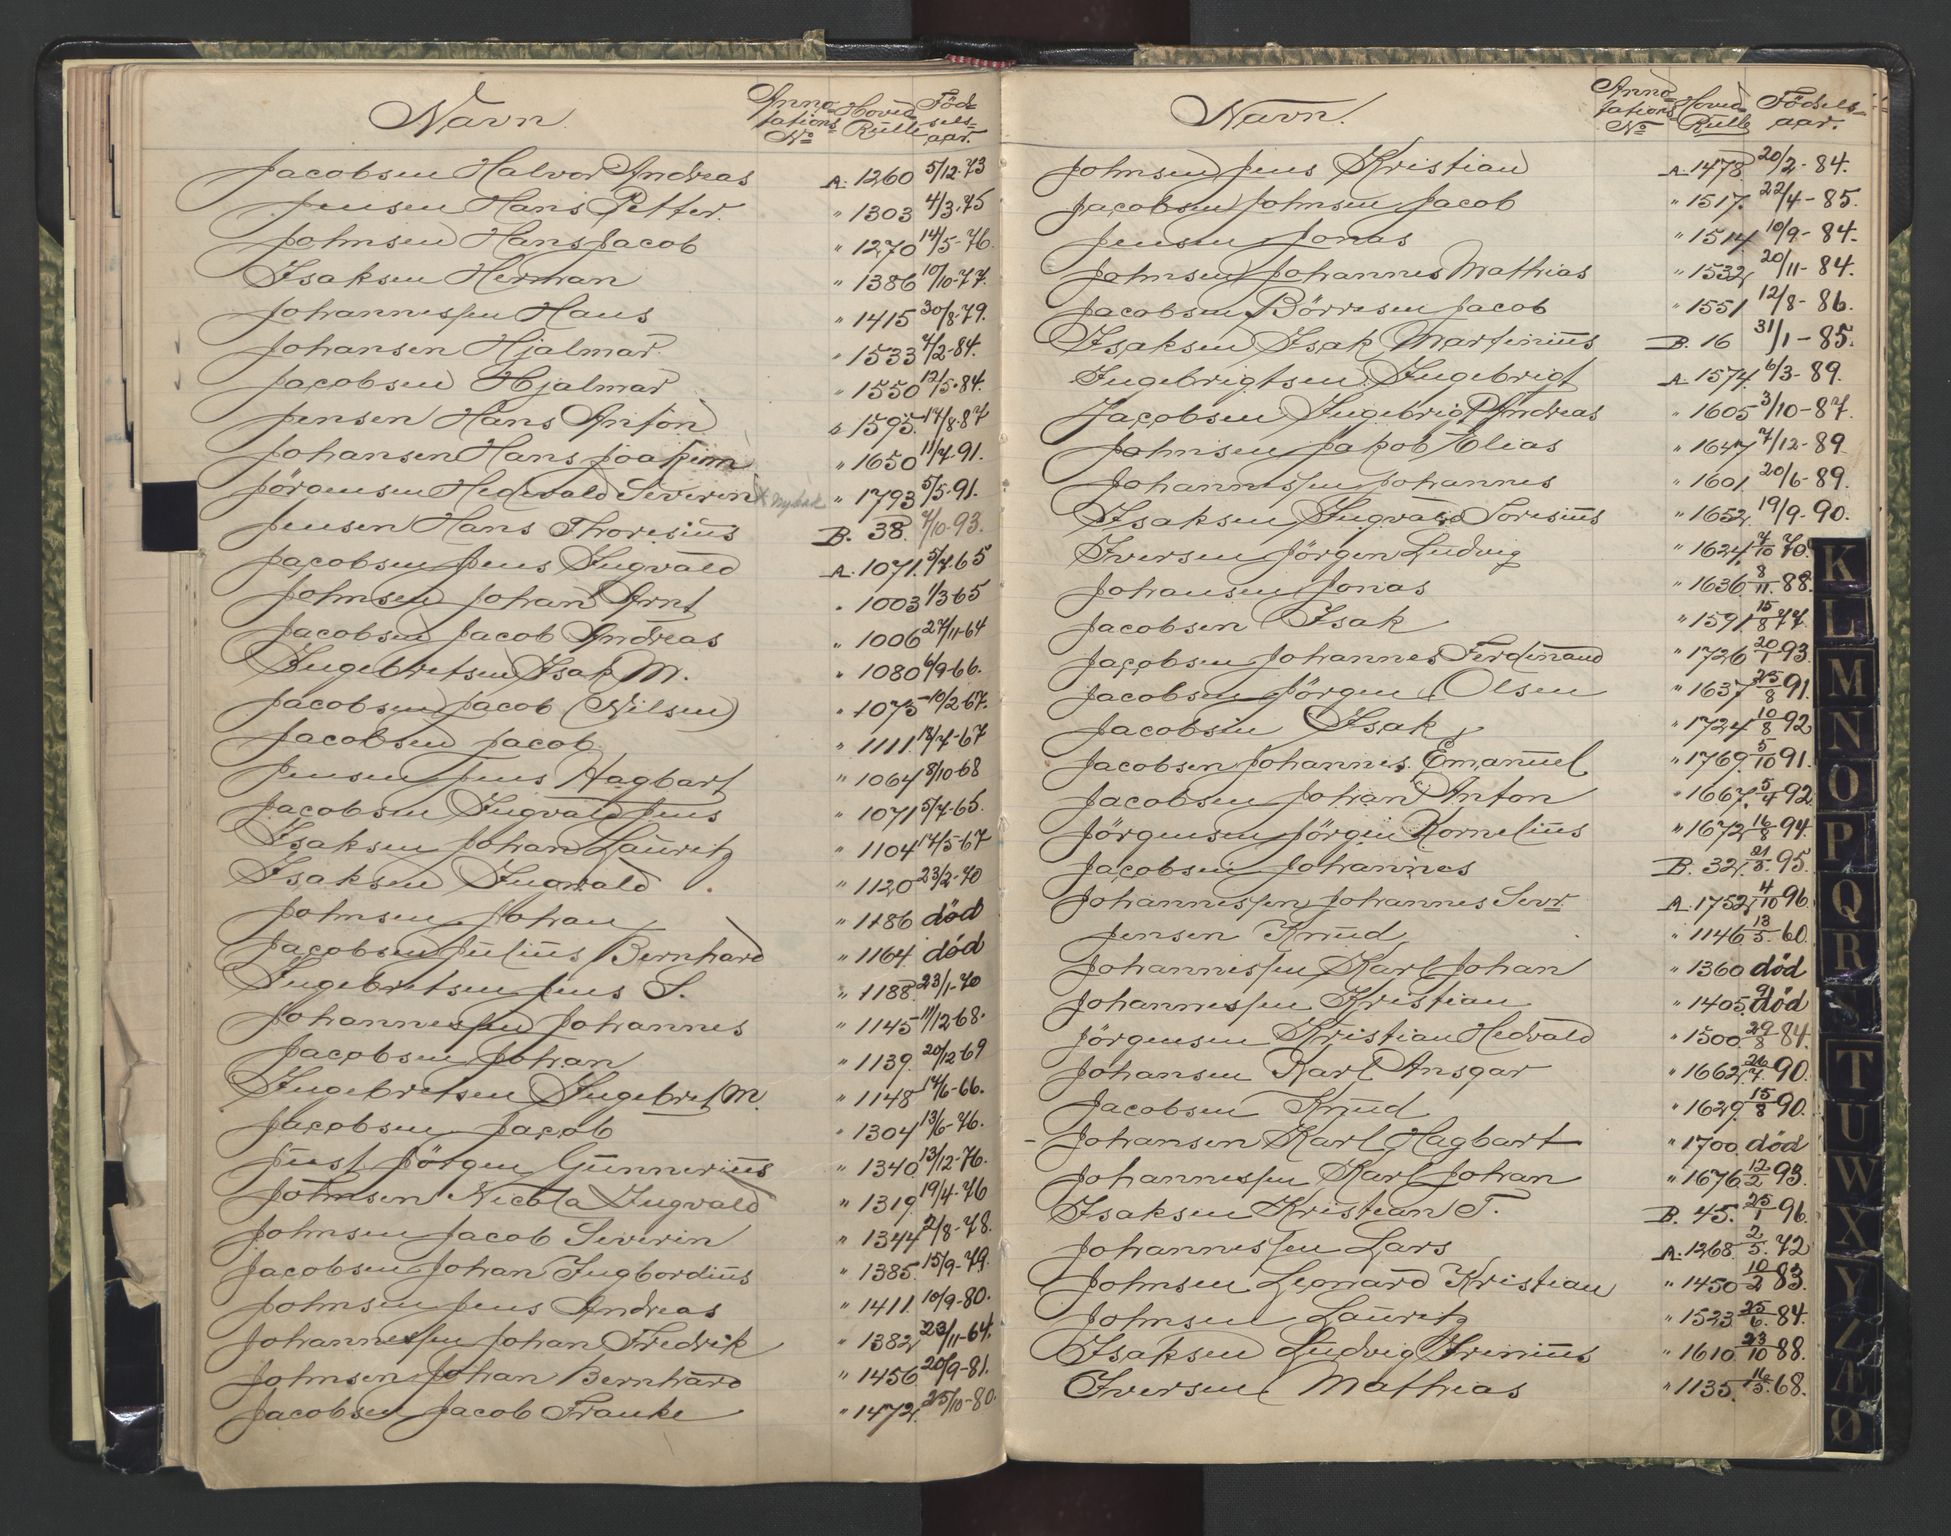 Navn. Annotations No Hoved Rulle Fødselsaar.
Jacobsen Halvor Andreas A. 1260 5/12-73
Jensen Hans Petter. " 1303 4/3-75
Johnsen Hans Jacob " 1270 14/5-76.
Isaksen Herman " 1386 10/10-77.
Johannessen Hans " 1415 30/8-79.
Johansen Hjalmar " 1533 7/2-84.
Jacobsen Hjalmar " 1550 12/5-84.
Jensen Hans Anton 1595. 17/8-87
Johansen Hans Joakim " 1650 11/7-91.
Jörgensen Hedevald Severin " 1793 5/5-91.
Jensen Hans Thoresius B. 38. 7/10-93.
Jacobsen Jens Ingvald A. 1071. 5/7-65
Johnsen Johan Arnt " 1003 1/3-65
Jacobsen Jacob Andreas " 1006 27/11-64
Ingebretsen Isak M. " 1080 6/9-66.
Jacobsen Jacob (Nilsen) " 1075 10/2-67.
Jacobsen Jacob " 1111. 13/7-67
Jensen Jens Hagbart " 1064 8/10-68
Jacobsen Ingvald Jens " 1071 5/7-65.
Isaksen Johan Lauritz " 1104 17/5-67
Isaksen Ingvald " 1120 23/2-70
Johnsen Johan " 1186 död
Jacobsen Julius Bernhard " 1164 död
Ingebretsen Jens S. " 1188. 23/1-70
Johannessen Johannes " 1145 11/12 68.
Jacobsen Johan " 1139. 20/12 69
Ingebretsen Ingebret M. " 1148 17/6-66.
Jacobsen Jacob " 1304 13/6-76.
Just Jörgen Gunnerius " 1340. 13/12-76.
Johnsen Nicola Ingvald " 1319. 19/4-76
Johnsen Jacob Severin " 1344 2/8-78.
Jacobsen Johan Ingbordius " 1385. 15/9-79.
Johnsen Jens Andreas " 1411. 10/9-80.
Johannessen Johan Fredrik " 1382 23/11-64.
Johnsen Johan Bernhard " 1456. 20/9-81.
Jacobsen Jacob Franke " 1472. 25/10-80.
Navn. Annotations No Hoved Rulle Födselsaar.
Johnsen Jens Kristian A. 1478 20/2-84.
Jacobsen Johnsen Jacob " 1517. 22/4-85.
Jensen Jonas " 1514 10/9-84.
Johnsen Johannes Mathias " 1532 20/11-84.
Jacobsen Börresen Jacob " 1551 12/8-86.
Isaksen Isak Martinius B. 16 31/1-85.
Ingebrigtsen Ingebrigt A. 1574. 6/3-89.
Jacobsen Ingebrigt Andreas " 1605 3/10-87.
Johnsen Jakob Elias " 1647 7/12-89.
Johannessen Johannes " 1601. 20/6-89.
Isaksen Ingvald Soresius " 1652. 19/9-90.
Iversen Jörgen Ludvig " 1624. 7/10 70.
Johansen Jonas " 1636. 8/11 88.
Jacobsen Isak " 1591. 15/8 77.
Jacobsen Johannes Ferdinand " 1726 20/1 93.
Jacobsen Jörgen Olsen " 1637 25/8 91.
Jacobsen Isak " 1724 10/8 92
Jacobsen Johannes Emanuel " 1769. 5/10 91.
Jacobsen Johan Anton " 1667. 5/4 92
Jörgensen Jörgen Kornelius " 1672 16/8 94.
Jacobsen Johannes B. 32. 21/5 95.
Johannessen Johannes Sevr. A. 1752. 4/10 96.
Jensen Knud " 1146 13/5 60.
Johannessen Karl Johan " 1360 död
Johannessen Kristian " 1405. död
Jörgensen Kristian Hedvald " 1500. 29/8 84.
Johansen Karl Ansgar " 1662. 26/7 90.
Jacobsen Knud " 1629. 15/8 90.
- Johansen Karl Hagbart " 1700 död
Johannessen Karl Johan " 1676. 12/2 93.
Isaksen Kristian T. B. 45. 25/1 96.
Johannessen Lars A. 1268. 2/5. 72
Johnsen Leonard Kristian " 1450 10/2 83.
Johnsen Lauritz " 1523. 25/6. 84.
Isaksen Ludvig Irenius " 1610. 23/10 88.
Iversen Mathias " 1135. 16/5. 68.
K
L
M
N
O
P
Q
R
S
T
U
W
X
Y
Z
Æ
Ø